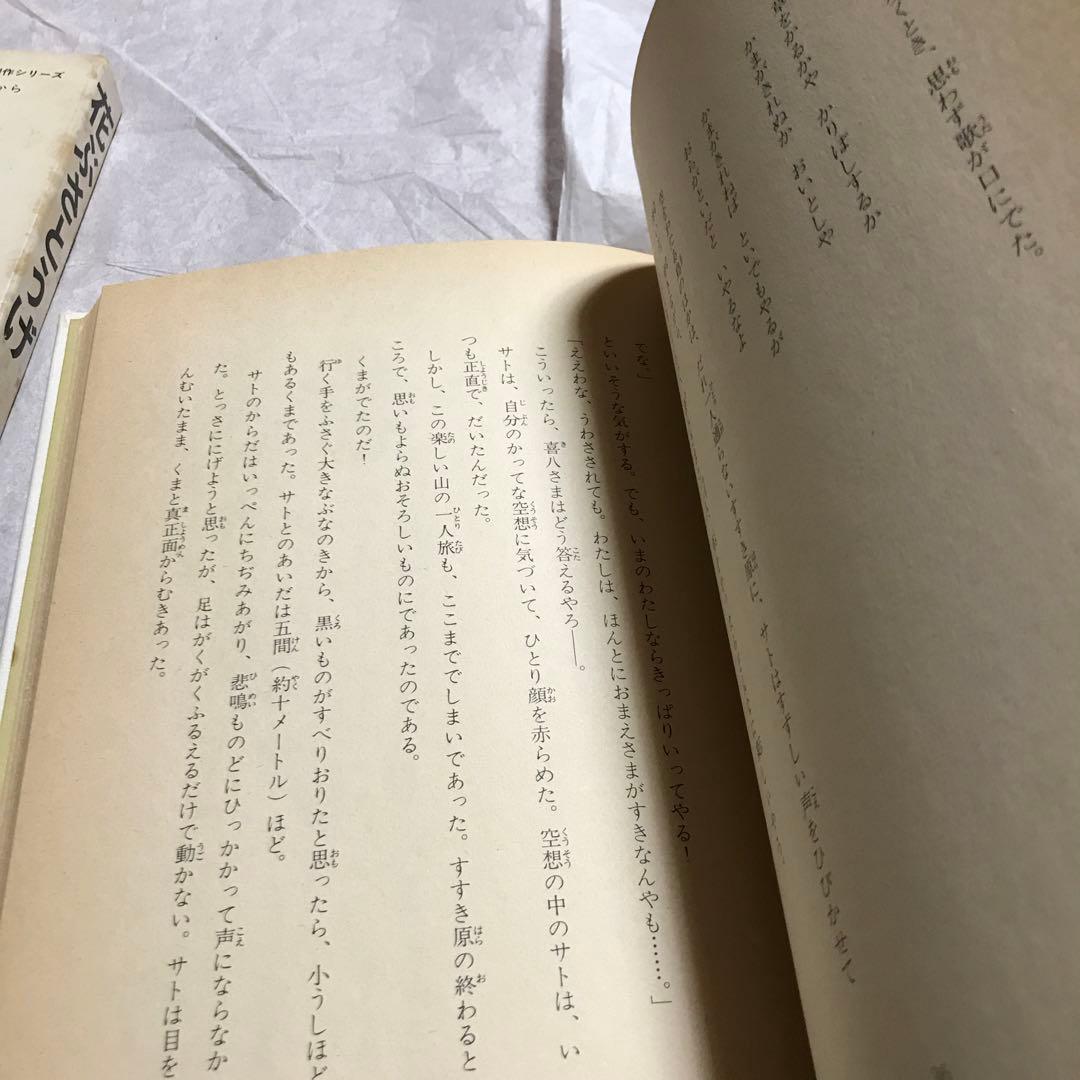 くとき、思わず歌が口にでた。
かりばしするか
かまがきれぬか　おいとしや
かまがきれねば　といでもやるが
いやるなよ
サトはすずしい声をひびかせて
でな。」
といいそうな気がする。でも、いまのわたしならきっぱりいってやる！
「ええわな、うわさされても。わたしは、ほんとにおまえさまがすきなんやも……。」
こういったら、喜八さまはどう答えるやろ――。
サトは、自分のかってな空想に気づいて、ひとり顔を赤らめた。空想の中のサトは、い
つも正直で、だいたんだった。
しかし、この楽しい山の一人旅も、ここまででしまいであった。すすき原の終わると
ころで、思いもよらぬおそろしいものにであったのである。
くまがでたのだ！
行く手をふさぐ大きなぶなのきから、黒いものがすべりおりたと思ったら、小うしほど
もあるくまであった。サトとのあいだは五間（約十メートル）ほど。
サトのからだはいっぺんにちぢみあがり、悲鳴ものどにひっかかって声にならなか
た。とっさににげようと思ったが、足はがくがくふるえるだけで動かない。サトは目を
んむいたまま、くまと真正面からむきあった。
作シリーズ
から
花ぶさとうげ